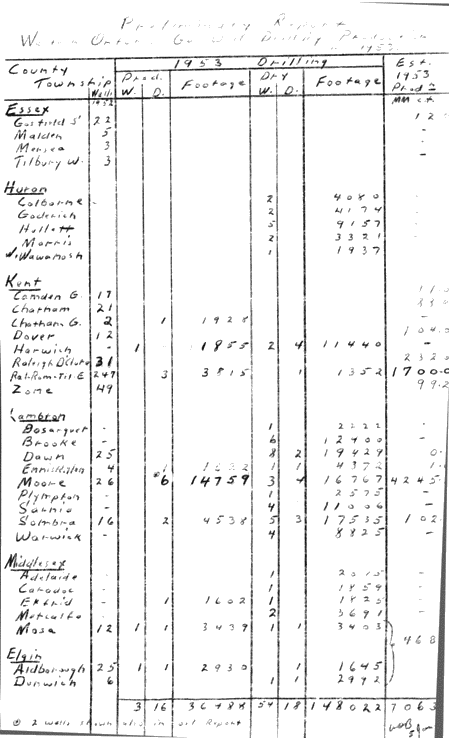 Preliminary Report
1953
County 1953 Drilling Est.
Township Wells Prod. Footage Dry Footage 1953
1952 W. D. W. D. Prod'n
MM c.f.
Essex
Gosfield S' 22
Malden 5 -
Mersea 3 -
Tilbury W. 3 -
Huron
Colborne - 2 4080
Goderich 2 4174
Hullett 5 9157
Morris 2 3321
W. Wawanosh 1 1937
Kent
Camden G. 17
Chatham 21
Chatham G. 2 1 1928
Dover 12
Harwich - 1 1855 2 4 11440
Raleigh 31 232.0
Ral-Rom-Til E 247 3 3815 1 1352 1700.0
Zone 49 99.2
Lambton
Bosanquet - 1 2222
Brooke - 6 12400
Dawn 25 8 2 19429
Enniskillen 4 1 1 1 4372
Moore 26 6 14759 3 4 16767 4245
Plympton - 1 2575 -
Sarnia - 4 11006 -
Sombra 16 2 4538 5 3 17535 102
Warwick - 4 8825 -
Middlesex
Adelaide - 1 2015
Caradoc - 1 1859
Ekfrid - 1 1602 1 1825
Metcalfe - 2 3691
Mosa 12 1 1 3439 1 1 3403
468
Elgin
Aldborough 25 1 1 2930 1 1645
Dunwich 6 1 1 2992
3 16 36488 54 18 148022 7063
2 wells shown also in oil Report